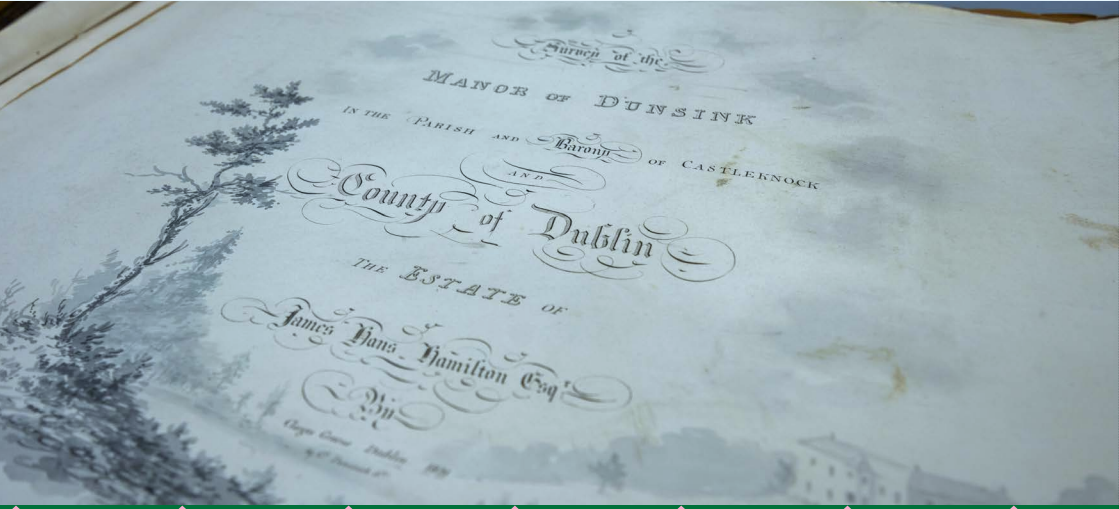 Survey of the
MANOR OF DUNSINK
IN THE PARISH AND Barony OF CASTLEKNOCK
AND
County of Dublin
THE ESTATE OF
James Hans Hamilton Esqr
By
Dublin